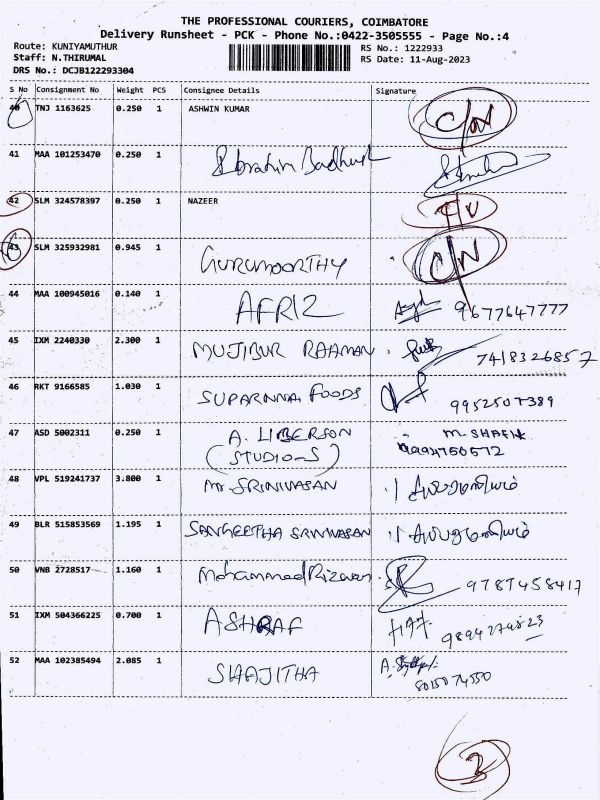 THE PROFESSIONAL COURIERS, COIMBATORE
Delivery Runsheet - PCK - Phone No.:0422-3505555 - Page No.:4
Route: KUNIYAMUTHUR RS No.: 1222933
Staff: N.THIRUMAL RS Date: 11-Aug-2023
DRS No.: DCJB122293304
S No Consignment No Weight PCS Consignee Details Signature
40 TNJ 1163625 0.250 1 ASHWIN KUMAR C/N
41 MAA 101253470 0.250 1 Ibrahim Badhusha
42 SLM 324578397 0.250 1 NAZEER
43 SLM 325932981 0.945 1 GURUMOORTHY C/N
44 MAA 100945016 0.140 1 AFRIZ 9677647777
45 IXM 2240330 2.300 1 MUJIBUR RAHMAN 7418326857
46 RKT 9166585 1.030 1 SUPARNNA FOODS 9952507389
47 ASD 5002311 0.250 1 A. LIBERSON M. SHAFIK
(STUDIO-S) 9994750572
48 VPL 519241737 3.800 1 Mr SRINIVASAN
49 BLR 515853569 1.195 1 SANGEETHA SRINIVASAN
50 VNB 2728517 1.160 1 Mohammed Rizwan 9787458417
51 IXM 504366225 0.700 1 ASHRAF 9894274823
52 MAA 102385494 2.085 1 SHAJITHA 8015074550
3